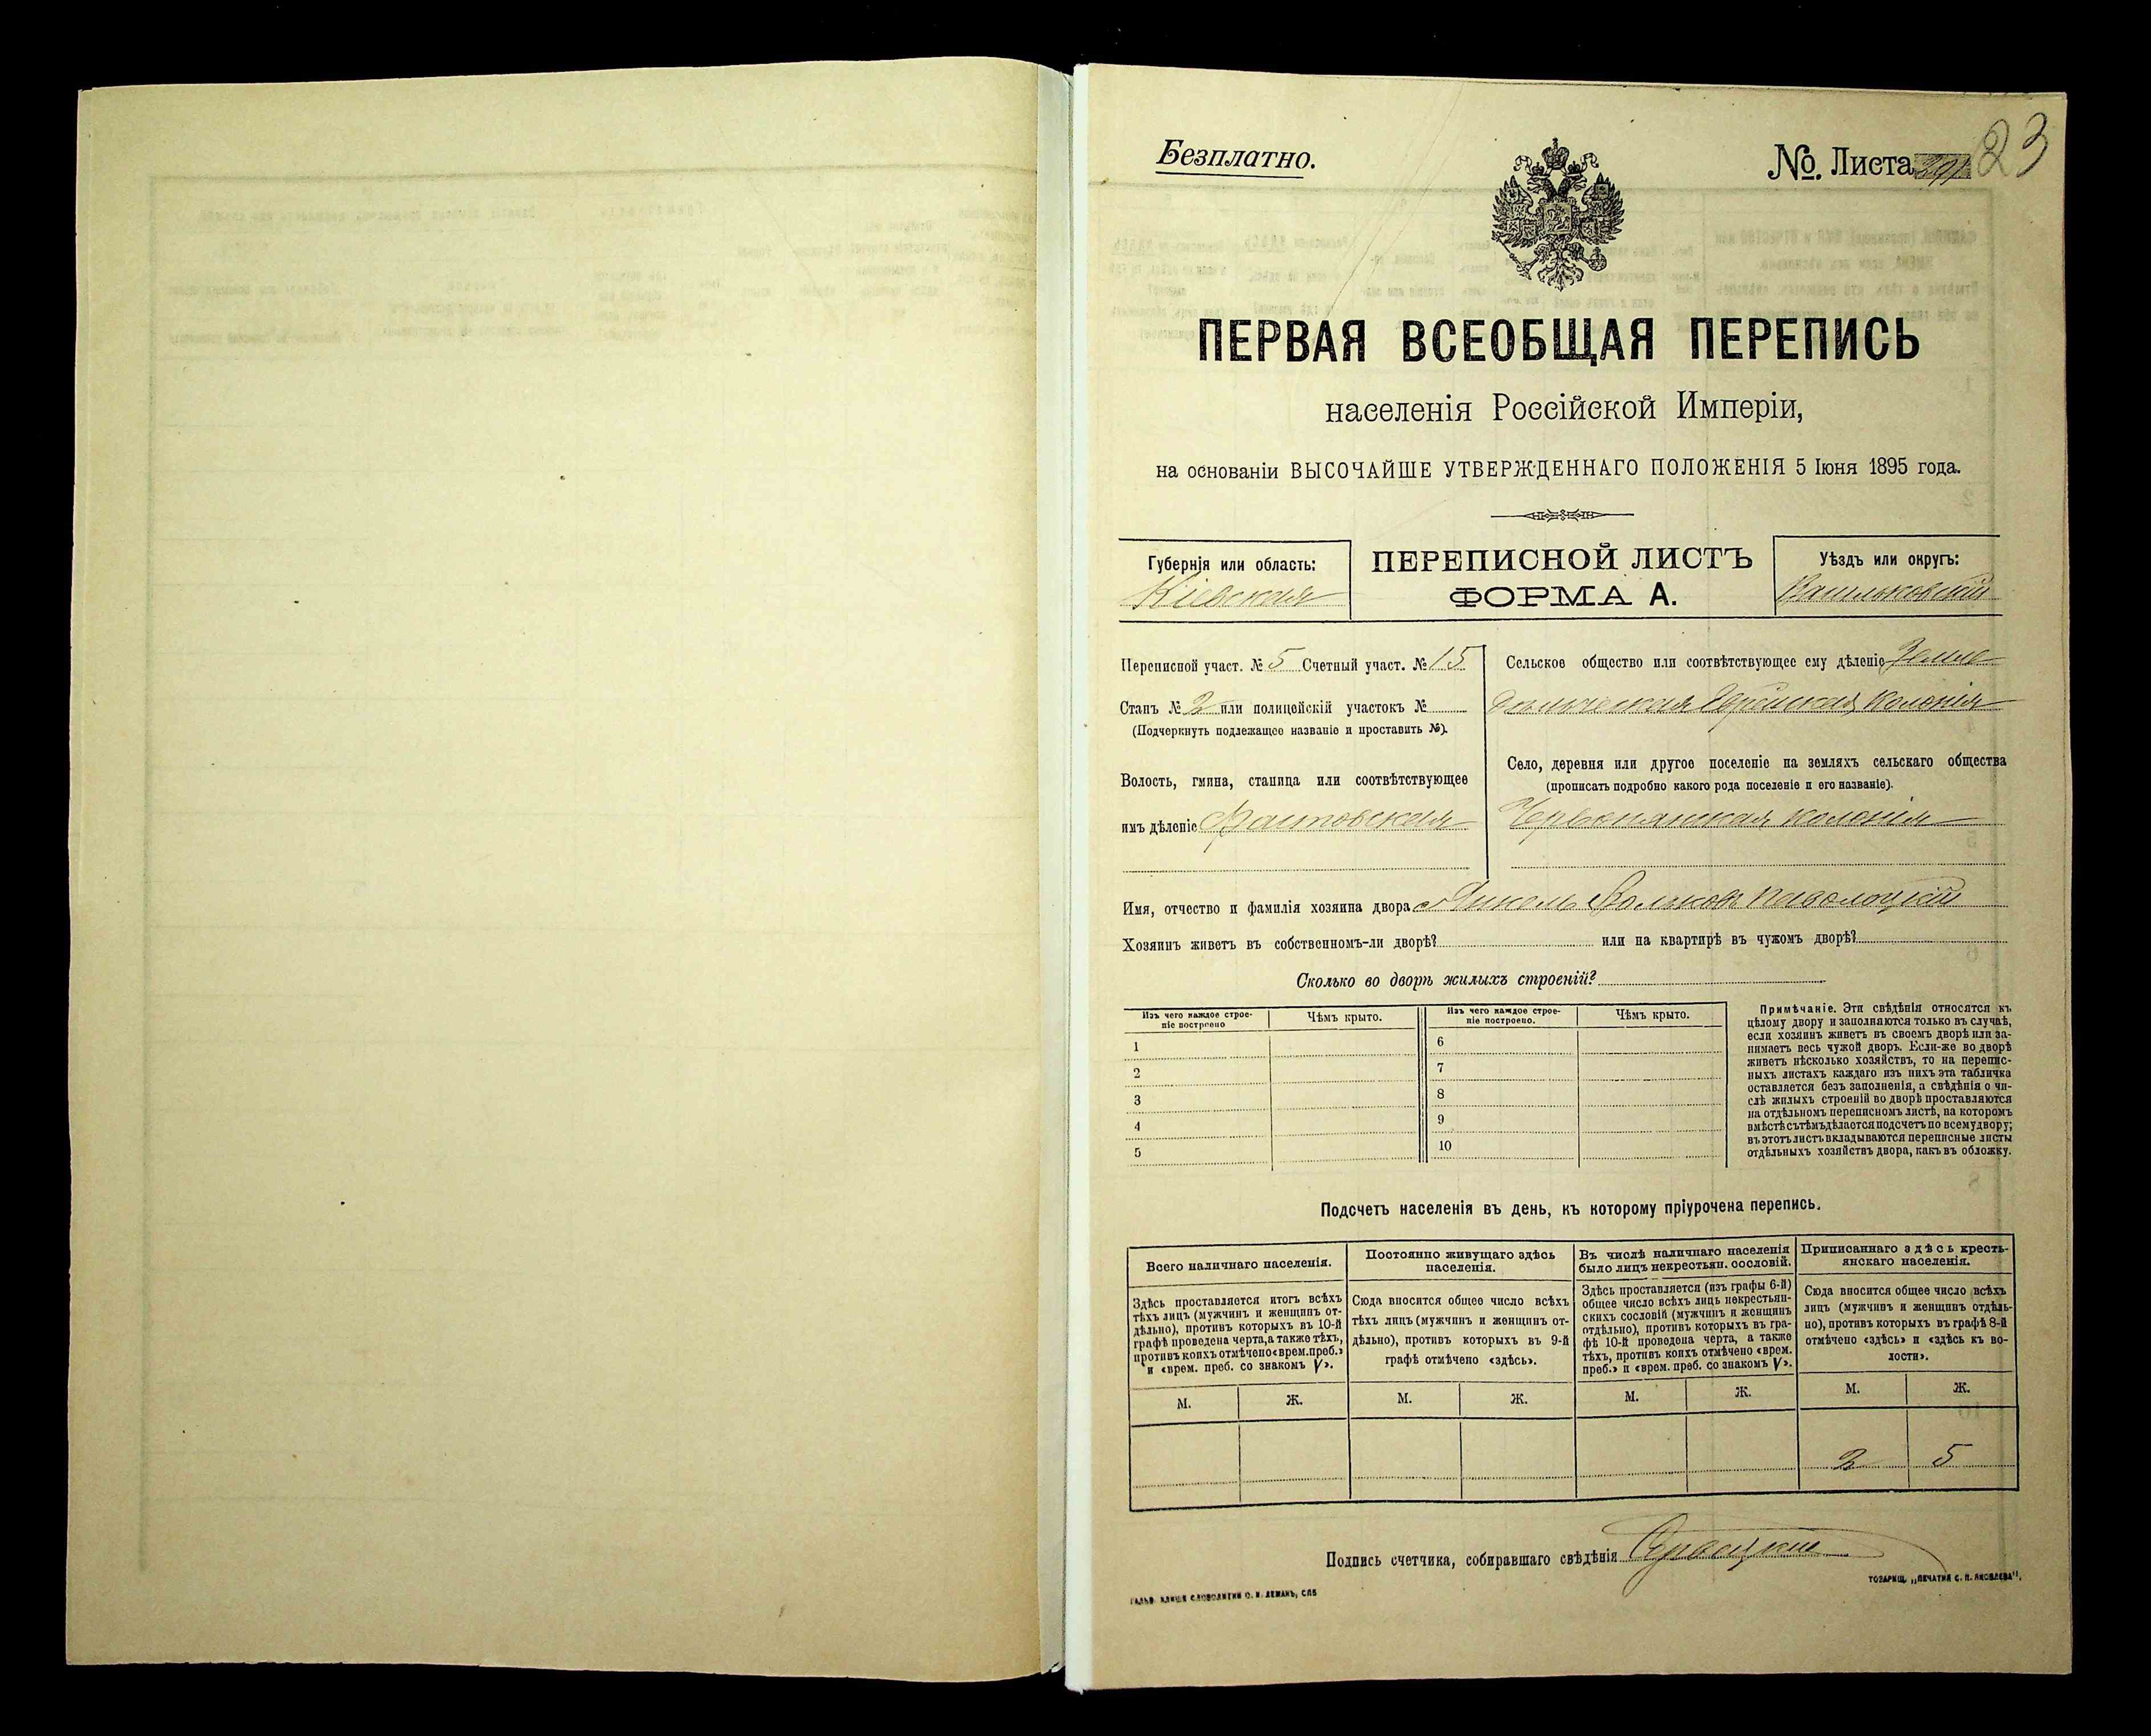 Безплатно.
№. Листа 23
ПЕРВАЯ ВСЕОБЩАЯ ПЕРЕПИСЬ
населенія Россійской Имперіи,
на основаніи ВЫСОЧАЙШЕ УТВЕРЖДЕННАГО ПОЛОЖЕНІЯ 5 Іюня 1895 года.
Губернія или область:
Кіевская
ПЕРЕПИСНОЙ ЛИСТЪ
ФОРМА А.
Уѣздъ или округъ:
Васильковскій
Переписной участ. № 5 Счетный участ. № 15
Станъ № 2 или полицейскій участокъ №
(Подчеркнуть подлежащее названіе и проставить №).
Волость, гмина, станица или соотвѣтствующее
имъ дѣленіе Фастовская
Сельское общество или соотвѣтствующее ему дѣленіе Земле-
дѣльческая Еврейская колонія
Село, деревня или другое поселеніе на земляхъ сельскаго общества
(прописать подробно какого рода поселеніе и его названіе).
Червонянская колонія
Имя, отчество и фамилія хозяина двора Янкель Вольковъ Паволоцкій
Хозяинъ живетъ въ собственномъ-ли дворѣ? или на квартирѣ въ чужомъ дворѣ?
Сколько во дворѣ жилыхъ строеній?
Изъ чего каждое строе-
ніе построено
Чѣмъ крыто.
Изъ чего каждое строе-
ніе построено.
Чѣмъ крыто.
1
2
3
4
5
6
7
8
9
10
Примѣчаніе. Эти свѣдѣнія относятся къ
цѣлому двору и заполняются только въ случаѣ,
если хозяинъ живетъ въ своемъ дворѣ или за-
нимаетъ весь чужой дворъ. Если-же во дворѣ
живетъ нѣсколько хозяйствъ, то на перепис-
ныхъ листахъ каждаго изъ нихъ эта табличка
оставляется безъ заполненія, а свѣдѣнія о чи-
слѣ жилыхъ строеній во дворѣ проставляются
на отдѣльномъ переписномъ листѣ, на которомъ
вмѣстѣ съ тѣмъ дѣлается подсчетъ по всему двору;
въ этотъ листъ вкладываются переписные листы
отдѣльныхъ хозяйствъ двора, какъ въ обложку.
Подсчетъ населенія въ день, къ которому пріурочена перепись.
Всего наличнаго населенія.
Здѣсь проставляется итогъ всѣхъ
тѣхъ лицъ (мужчинъ и женщинъ от-
дѣльно), противъ которыхъ въ 10-й
графѣ проведена черта, а также тѣхъ,
противъ коихъ отмѣчено «врем. преб.»
и «врем. преб. со знакомъ V».
Постоянно живущаго здѣсь
населенія.
Сюда вносится общее число всѣхъ
тѣхъ лицъ (мужчинъ и женщинъ от-
дѣльно), противъ которыхъ въ 9-й
графѣ отмѣчено «здѣсь».
Въ числѣ наличнаго населенія
было лицъ некрестьян. сословій.
Здѣсь проставляется (изъ графы 6-й)
общее число всѣхъ лицъ некрестьян-
скихъ сословій (мужчинъ и женщинъ
отдѣльно), противъ которыхъ въ гра-
фѣ 10-й проведена черта, а также
тѣхъ, противъ коихъ отмѣчено «врем.
преб.» и «врем. преб. со знакомъ V».
Приписаннаго здѣсь кресть-
янскаго населенія.
Сюда вносится общее число всѣхъ
лицъ (мужчинъ и женщинъ отдѣль-
но), противъ которыхъ въ графѣ 8-й
отмѣчено «здѣсь» и «здѣсь къ во-
лости».
М. Ж. М. Ж. М. Ж. М. Ж.
2 5
Подпись счетчика, собиравшаго свѣдѣнія
ГАЛЬВ. КЛИШЕ СЛОВОЛИТНИ О. И. ЛЕМАНЪ, СПБ
ТОВАРИЩ. „ПЕЧАТНЯ С. П. ЯКОВЛЕВА".